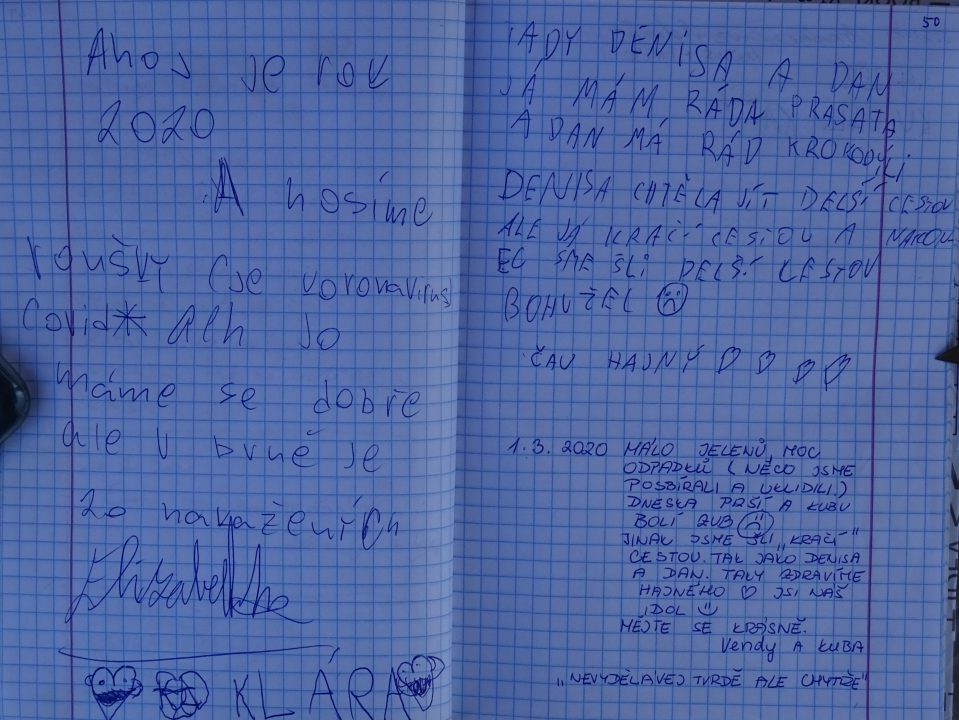 Ahoj je rok
2020
A nosíme
roušky (je koronavirus
Covid Ach jo
máme se dobře
ale v brně je
20 nakažených
KLÁRA
50
TADY DENISA A DAN
JÁ MÁM RÁDA PRASATA
A DAN MÁ RÁD KROKODÝLI
DENISA CHTĚLA JÍT DELŠÍ CESTOU
ALE JÁ KRAČÍ CESTOU A NAKON
EC SME ŠLI DELŠÍ CESTOU
BOHUŽEL ☹
ČAU HAJNÝ ♡ ♡ ♡ ♡
1.3. 2020 MÁLO JELENŮ, MOC
ODPADKŮ (NĚCO JSME
POSBÍRALI A UKLIDILI.)
DNESKA PRŠÍ A KUBU
BOLÍ ZUB ☹
JINAK JSME ŠLI „KRAČÍ"
CESTOU. TAK JAKO DENISA
A DAN. TAKY ZDRAVÍME
HAJNÉHO ♡ JSI NÁŠ
IDOL ☺
MĚJTE SE KRÁSNĚ.
Vendy A KUBA
„NEVYDĚLÁVEJ TVRDĚ ALE CHYTŘE"